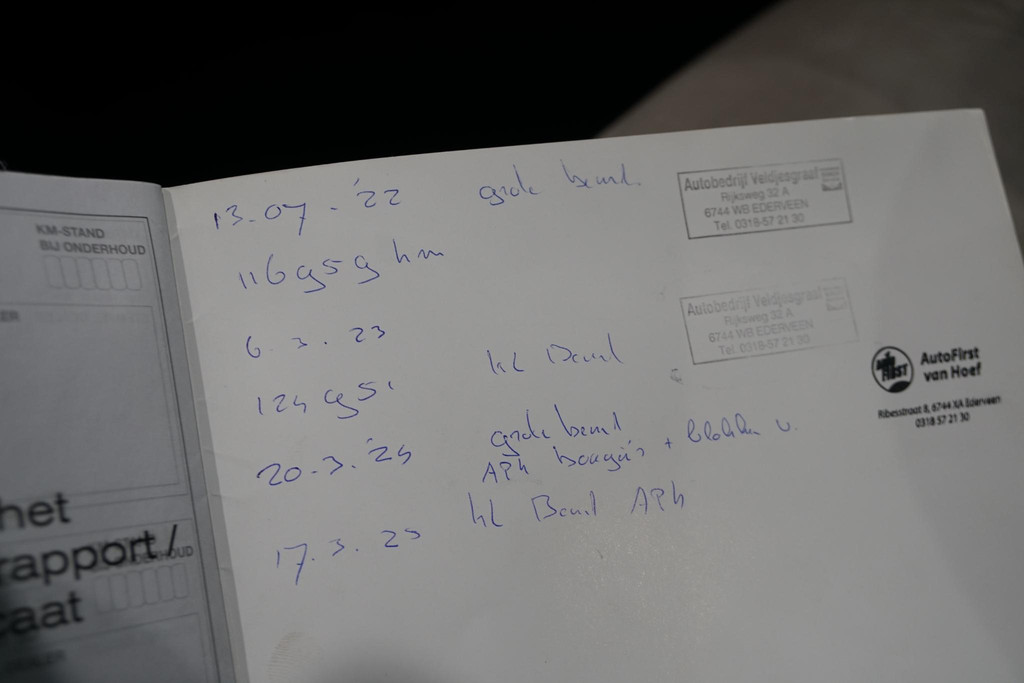 KM-STAND
BIJ ONDERHOUD
het
rapport/
caat
13-07-'22 grote beurt
116959 km
Autobedrijf Veldjesgraaf
Rijksweg 32 A
6744 WB EDERVEEN
Tel. 0318-57 21 30
6.3.23
124951 kl Beurt
Autobedrijf Veldjesgraaf
Rijksweg 32 A
6744 WB EDERVEEN
Tel. 0318-57 21 30
AutoFirst
van Hoef
Ribesstraat 8, 6744 XA Ederveen
0318 57 21 30
20-3.'24 grote beurt
APK bougie's + blokken v.
17.3.25 kl Beurt APK